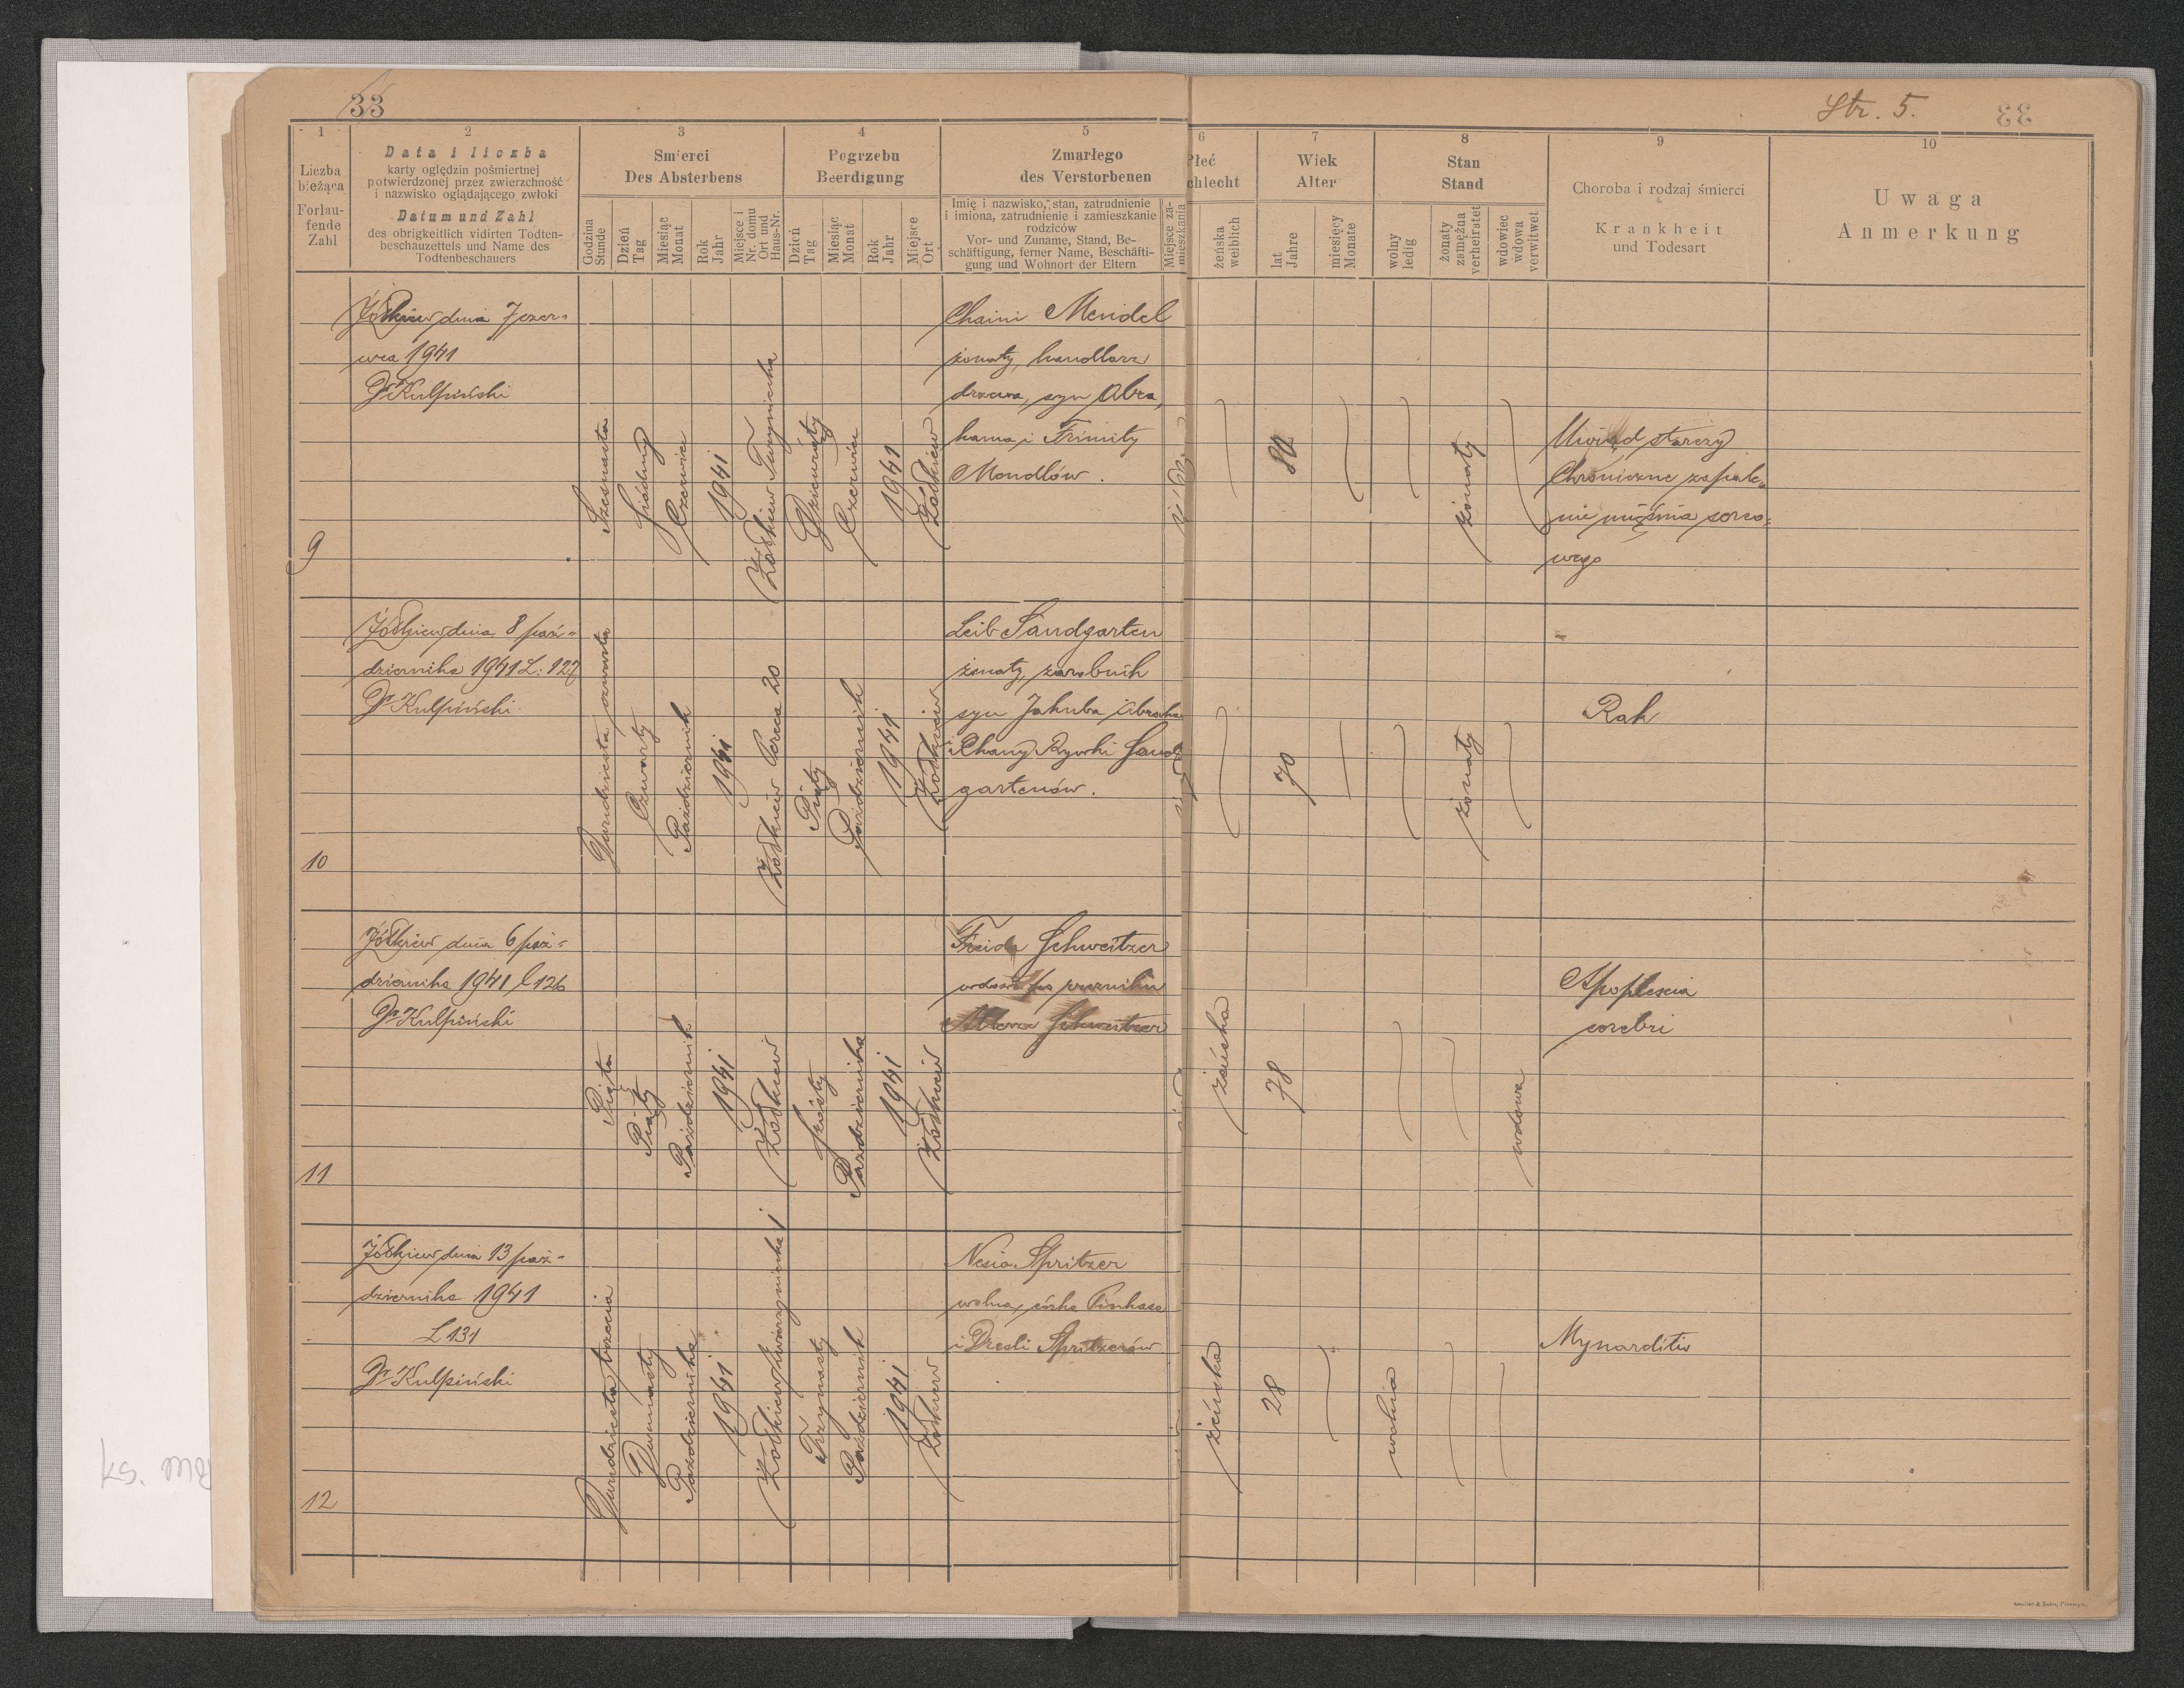 33
Str. 5.
33
1
2
3
4
5
6
7
8
9
10
Liczba
bieżąca
Forlau-
fende
Zahl
Data i liczba
karty oględzin pośmiertnej
potwierdzonej przez zwierzchność
i nazwisko oglądającego zwłoki
Datum und Zahl
des obrigkeitlich vidirten Todten-
beschauzettels und Name des
Todtenbeschauers
Smierci
Des Absterbens
Godzina
Stunde
Dzień
Tag
Miesiąc
Monat
Rok
Jahr
Miejsce i
Nr. domu
Ort und
Haus-Nr.
Pogrzebu
Beerdigung
Dzień
Tag
Miesiąc
Monat
Rok
Jahr
Miejsce
Ort
Zmarłego
des Verstorbenen
Imię i nazwisko, stan, zatrudnienie
i imiona, zatrudnienie i zamieszkanie
rodziców
Vor- und Zuname, Stand, Be-
schäftigung, ferner Name, Beschäfti-
gung und Wohnort der Eltern
Miejsce za-
mieszkania
Płeć
chlecht
żeńska
weiblich
Wiek
Alter
lat
Jahre
miesięcy
Monate
Stan
Stand
wolny
ledig
żonaty
zamężna
verheiratet
wdowiec
wdowa
verwitwet
Choroba i rodzaj śmierci
Krankheit
und Todesart
Uwaga
Anmerkung
9
Żółkiew dnia 7 czer-
wca 1941
Dr Kulpiński
Szesnasta
Siódmy
Czerwiec
1941
Żółkiew
Dziewiąty
Czerwiec
1941
Żółkiew
Chaim Mendel
żonaty, handlarz
drzewa, syn Abra
hama i
Mendlów.
80
żonaty
Uwiąd starczy
Chroniczne zapale-
nie mięśnia serco-
wego
10
Żółkiew dnia 8 paź-
dziernika 1941 L: 127
Dr Kulpiński
Dwudziesta czwarta
Czwarty
Październik
1941
Żółkiew Perca 20
Piąty
Październik
1941
Żółkiew
Leib Sandgarten
żonaty, zarobnik
syn Jakuba Abraha
i Chany Rywki Sand
gartenów.
70
żonaty
Rak
11
Żółkiew dnia 6 paź-
dziernika 1941 L 126
Dr Kulpiński
Piąta
Piąty
Październik
1941
Żółkiew
Szósty
Października
1941
Żółkiew
Freida Schweitzer
wdowa po
Schweitzer
żeńska
78
wdowa
Apoplexia
cerebri
12
Żółkiew dnia 13 paź-
dziernika 1941
L 131
Dr Kulpiński
Dwudziesta trzecia
Dwunasty
Października
1941
Żółkiew, Zwierzyniecka 1
Trzynasty
Październik
1941
Żółkiew
Nesia Spritzer
wolna, córka Pinkasa
i Dresli Spritzerów
żeńska
28
wolna